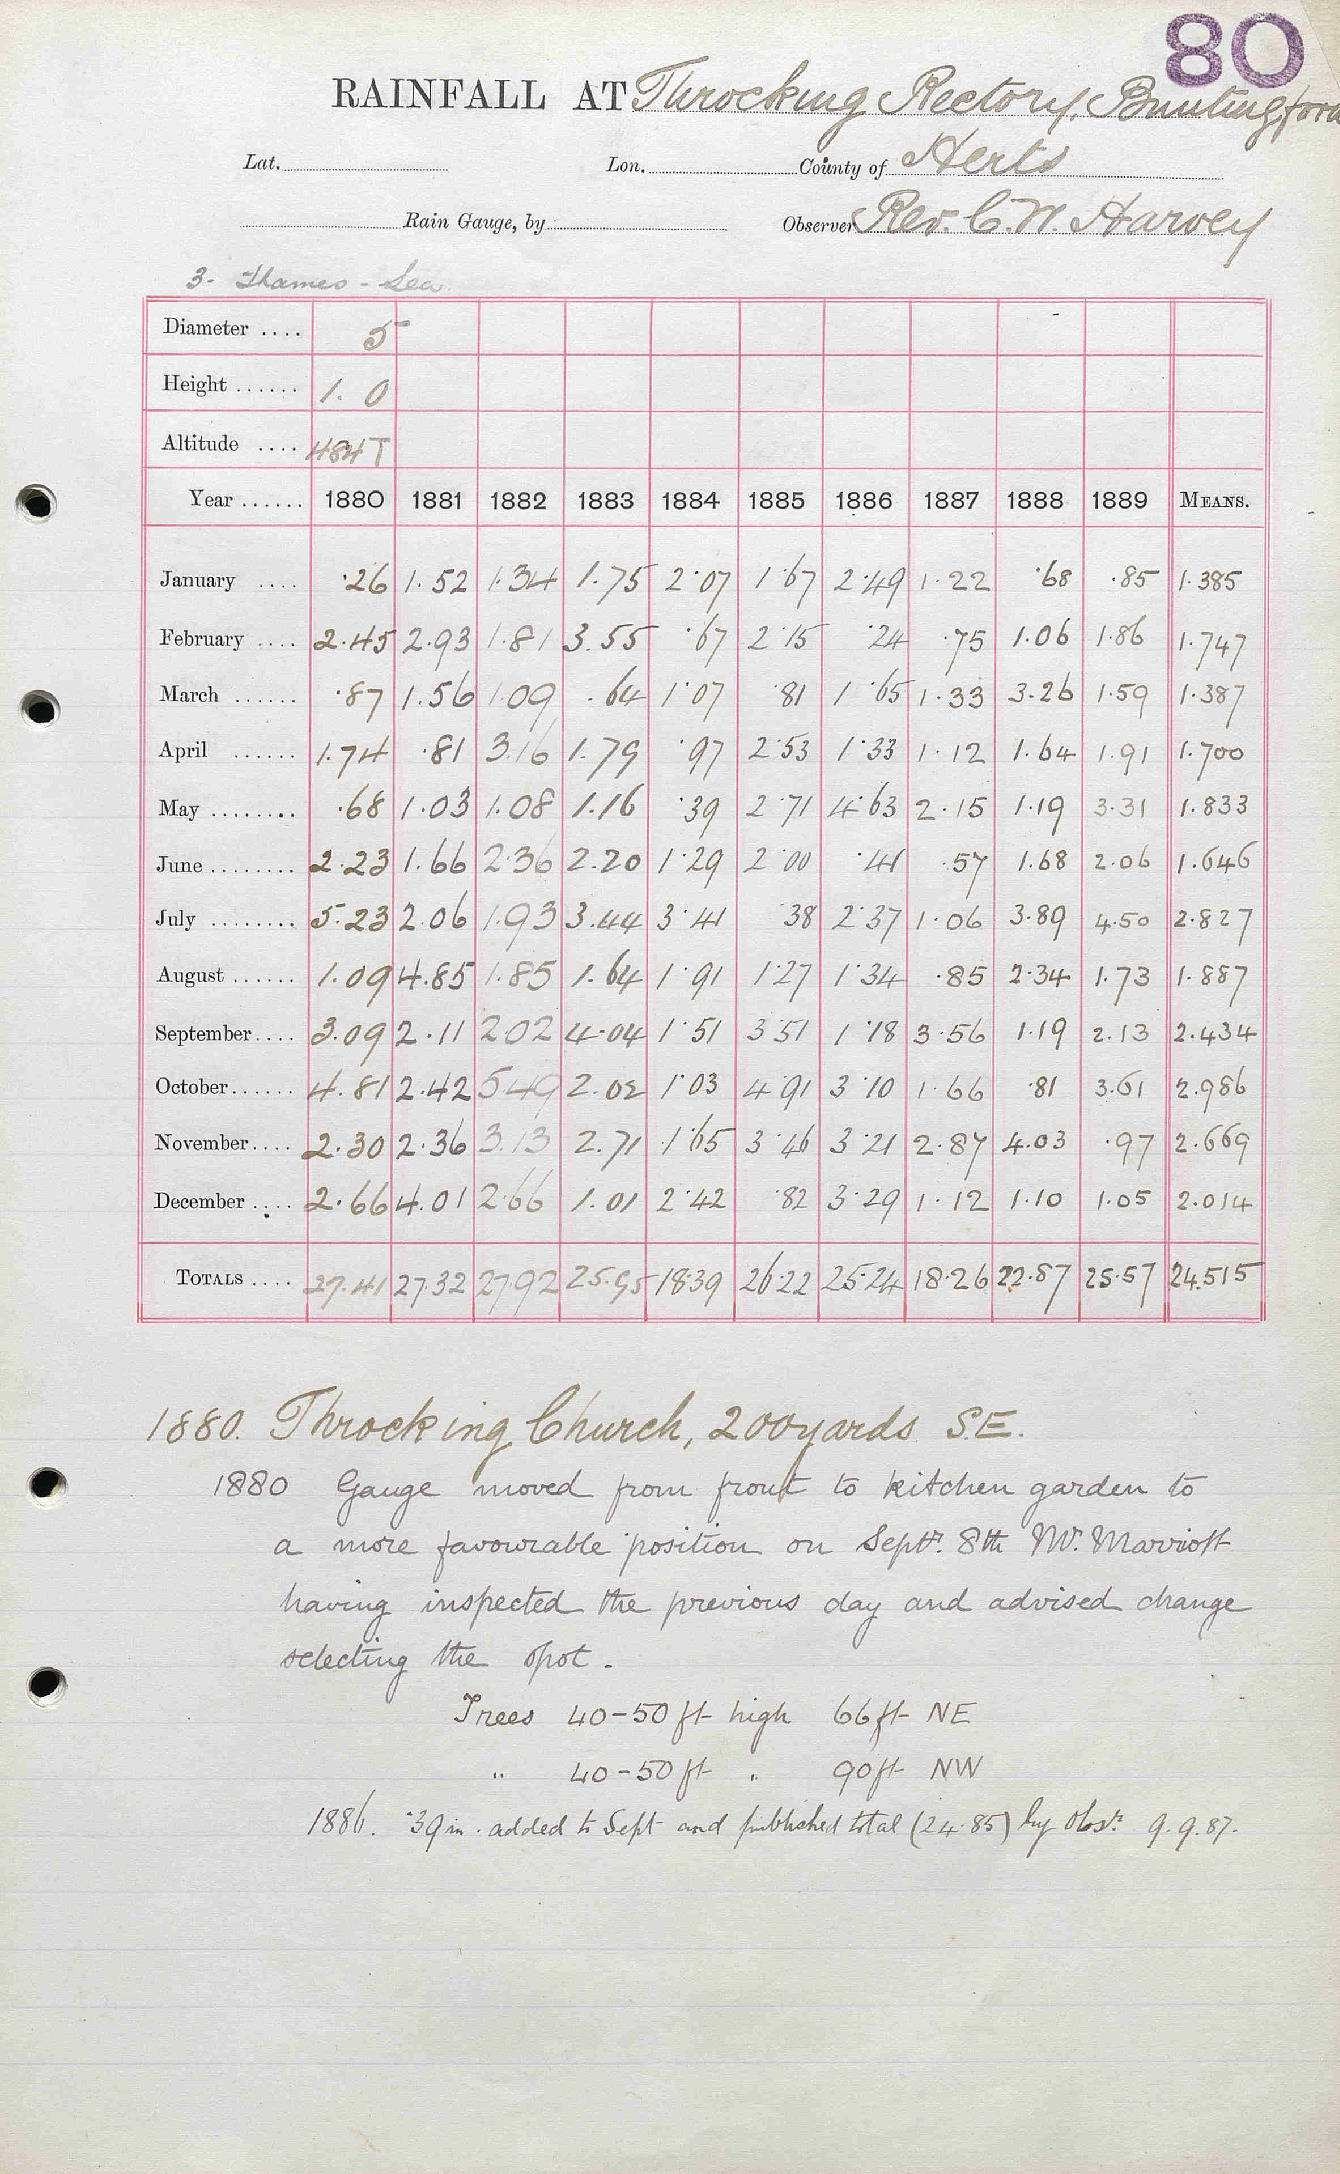 80
RAINFALL AT Throcking Rectory, Buntingford
Lat. Lon. County of Herts
Rain Gauge, by Observer Rev. C. W. Harvey
3- Thames - Lea
Diameter .... 5
Height ...... 1. 0
Altitude .... 484 T
Year ...... 1880 1881 1882 1883 1884 1885 1886 1887 1888 1889 MEANS.
January .... ·26 1.52 1.34 1.75 2·07 1·67 2·49 1·22 ·68 ·85 1·385
February .... 2.45 2.93 1.81 3.55 ·67 2·15 ·24 ·75 1.06 1.86 1.747
March ...... ·87 1.56 1.09 .64 1·07 ·81 1·65 1·33 3.26 1.59 1.387
April ...... 1.74 ·81 3.16 1.79 ·97 2·53 1·33 1·12 1.64 1.91 1.700
May ........ ·68 1.03 1.08 1.16 ·39 2·71 4·63 2·15 1.19 3.31 1.833
June ........ 2.23 1.66 2.36 2.20 1·29 2·00 ·41 ·57 1.68 2.06 1.646
July ........ 5.23 2.06 1.93 3.44 3·41 ·38 2·37 1·06 3.89 4.50 2.827
August ...... 1.09 4.85 1.85 1.64 1·91 1·27 1·34 ·85 2.34 1.73 1.887
September .... 3.09 2.11 2.02 4.04 1·51 3·51 1·18 3·56 1.19 2.13 2.434
October ...... 4.81 2.42 5.49 2.02 1·03 4·91 3·10 1·66 ·81 3.61 2.986
November .... 2.30 2.36 3.13 2.71 1·65 3·46 3·21 2·87 4.03 ·97 2.669
December .... 2.66 4.01 2.66 1.01 2·42 ·82 3·29 1·12 1.10 1.05 2.014
TOTALS .... 27.41 27.32 27.92 25.95 18.39 26.22 25.24 18.26 22.87 25.57 24.515
1880. Throcking Church, 200 yards S.E.
1880 Gauge moved from front to kitchen garden to
a more favourable position on Septr. 8th Mr. Marriott
having inspected the previous day and advised change
selecting the spot.
Trees 40-50 ft high 66 ft NE
" 40-50 ft " 90 ft NW
1886. ·39 in. added to Sept and published total (24.85) by Obsr. 9.9.87.